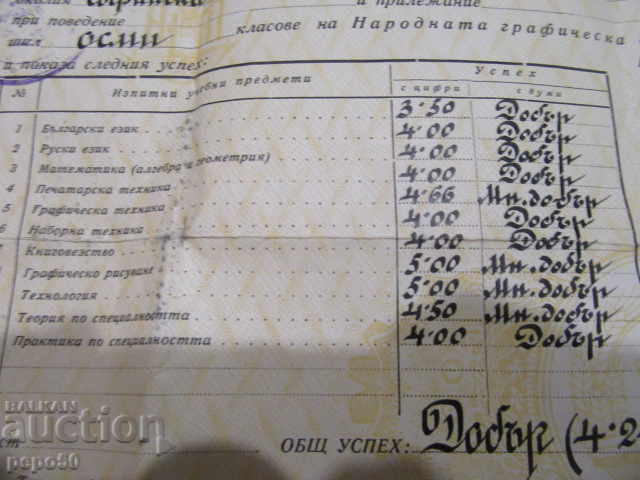 при поведение и прилежание
осми класове на Народната графическа
и показа следния успех:
№ Изпитни учебни предмети Успех
с цифри с думи
1 Български език 3·50 Добър
2 Руски език 4·00 Добър
3 Математика (алгебра и геометрия) 4·00 Добър
4 Печатарска техника 4·00 Добър
5 Графическа техника 4·66 Мн.добър
6 Наборна техника 4·00 Добър
Книговезство 4·00 Добър
Графическо рисуване 5·00 Мн.добър
Технология 5·00 Мн.добър
Теория по специалността 4·50 Мн.добър
Практика по специалността 4·00 Добър
ОБЩ УСПЕХ: Добър (4·2
BALKAN
auction
pepo50